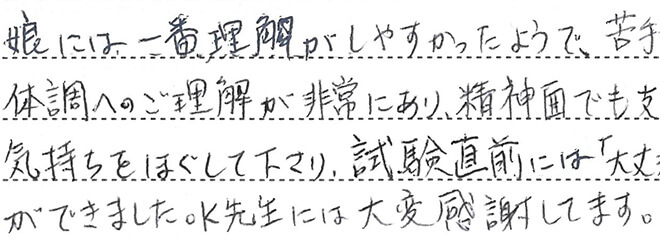 娘には、一番理解がしやすかったようで、苦手
体調へのご理解が非常にあり、精神面でも支
気持ちをほぐして下さり、試験直前には「大丈
ができました。K先生には大変感謝してます。